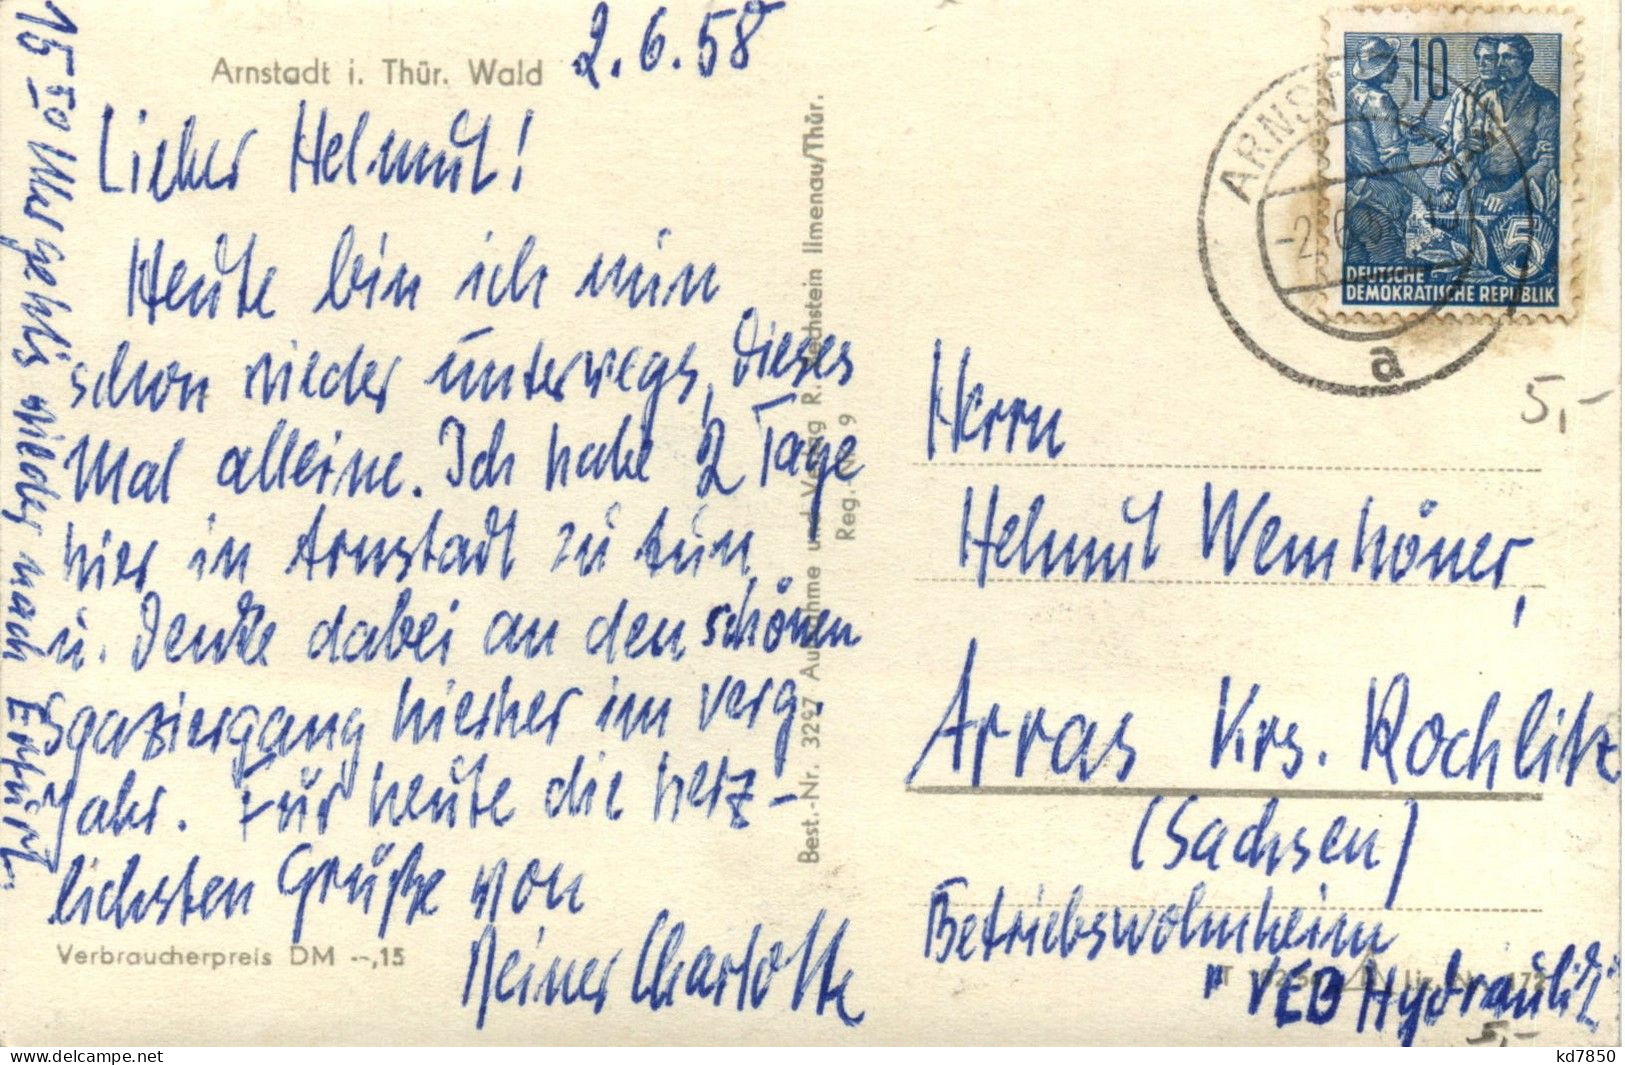 Arnstadt i. Thür. Wald
2.6.58
Lieber Helmut!
Heute bin ich nun
schon wieder unterwegs, dieses
Mal alleine. Ich habe 2 Tage
hier in Arnstadt zu tun
u. denke dabei an den schönen
Spaziergang hierher im verg.
Jahr. Für heute die herz-
lichsten Grüße von
Deiner Charlotte
15 50 Uhr geht's wieder nach Erfurt.
Verbraucherpreis DM --,15
Best.-Nr. 3297 Aufnahme und Verlag R. Bechstein Ilmenau/Thür.
Reg.-Nr. 9
10
5
DEUTSCHE
DEMOKRATISCHE REPUBLIK
a
5,-
Herrn
Helmut Wemhöner,
Arras Krs. Rochlitz
(Sachsen)
Betriebswohnheim
"VEB Hydraulik"
5,-
www.delcampe.net
kd7850